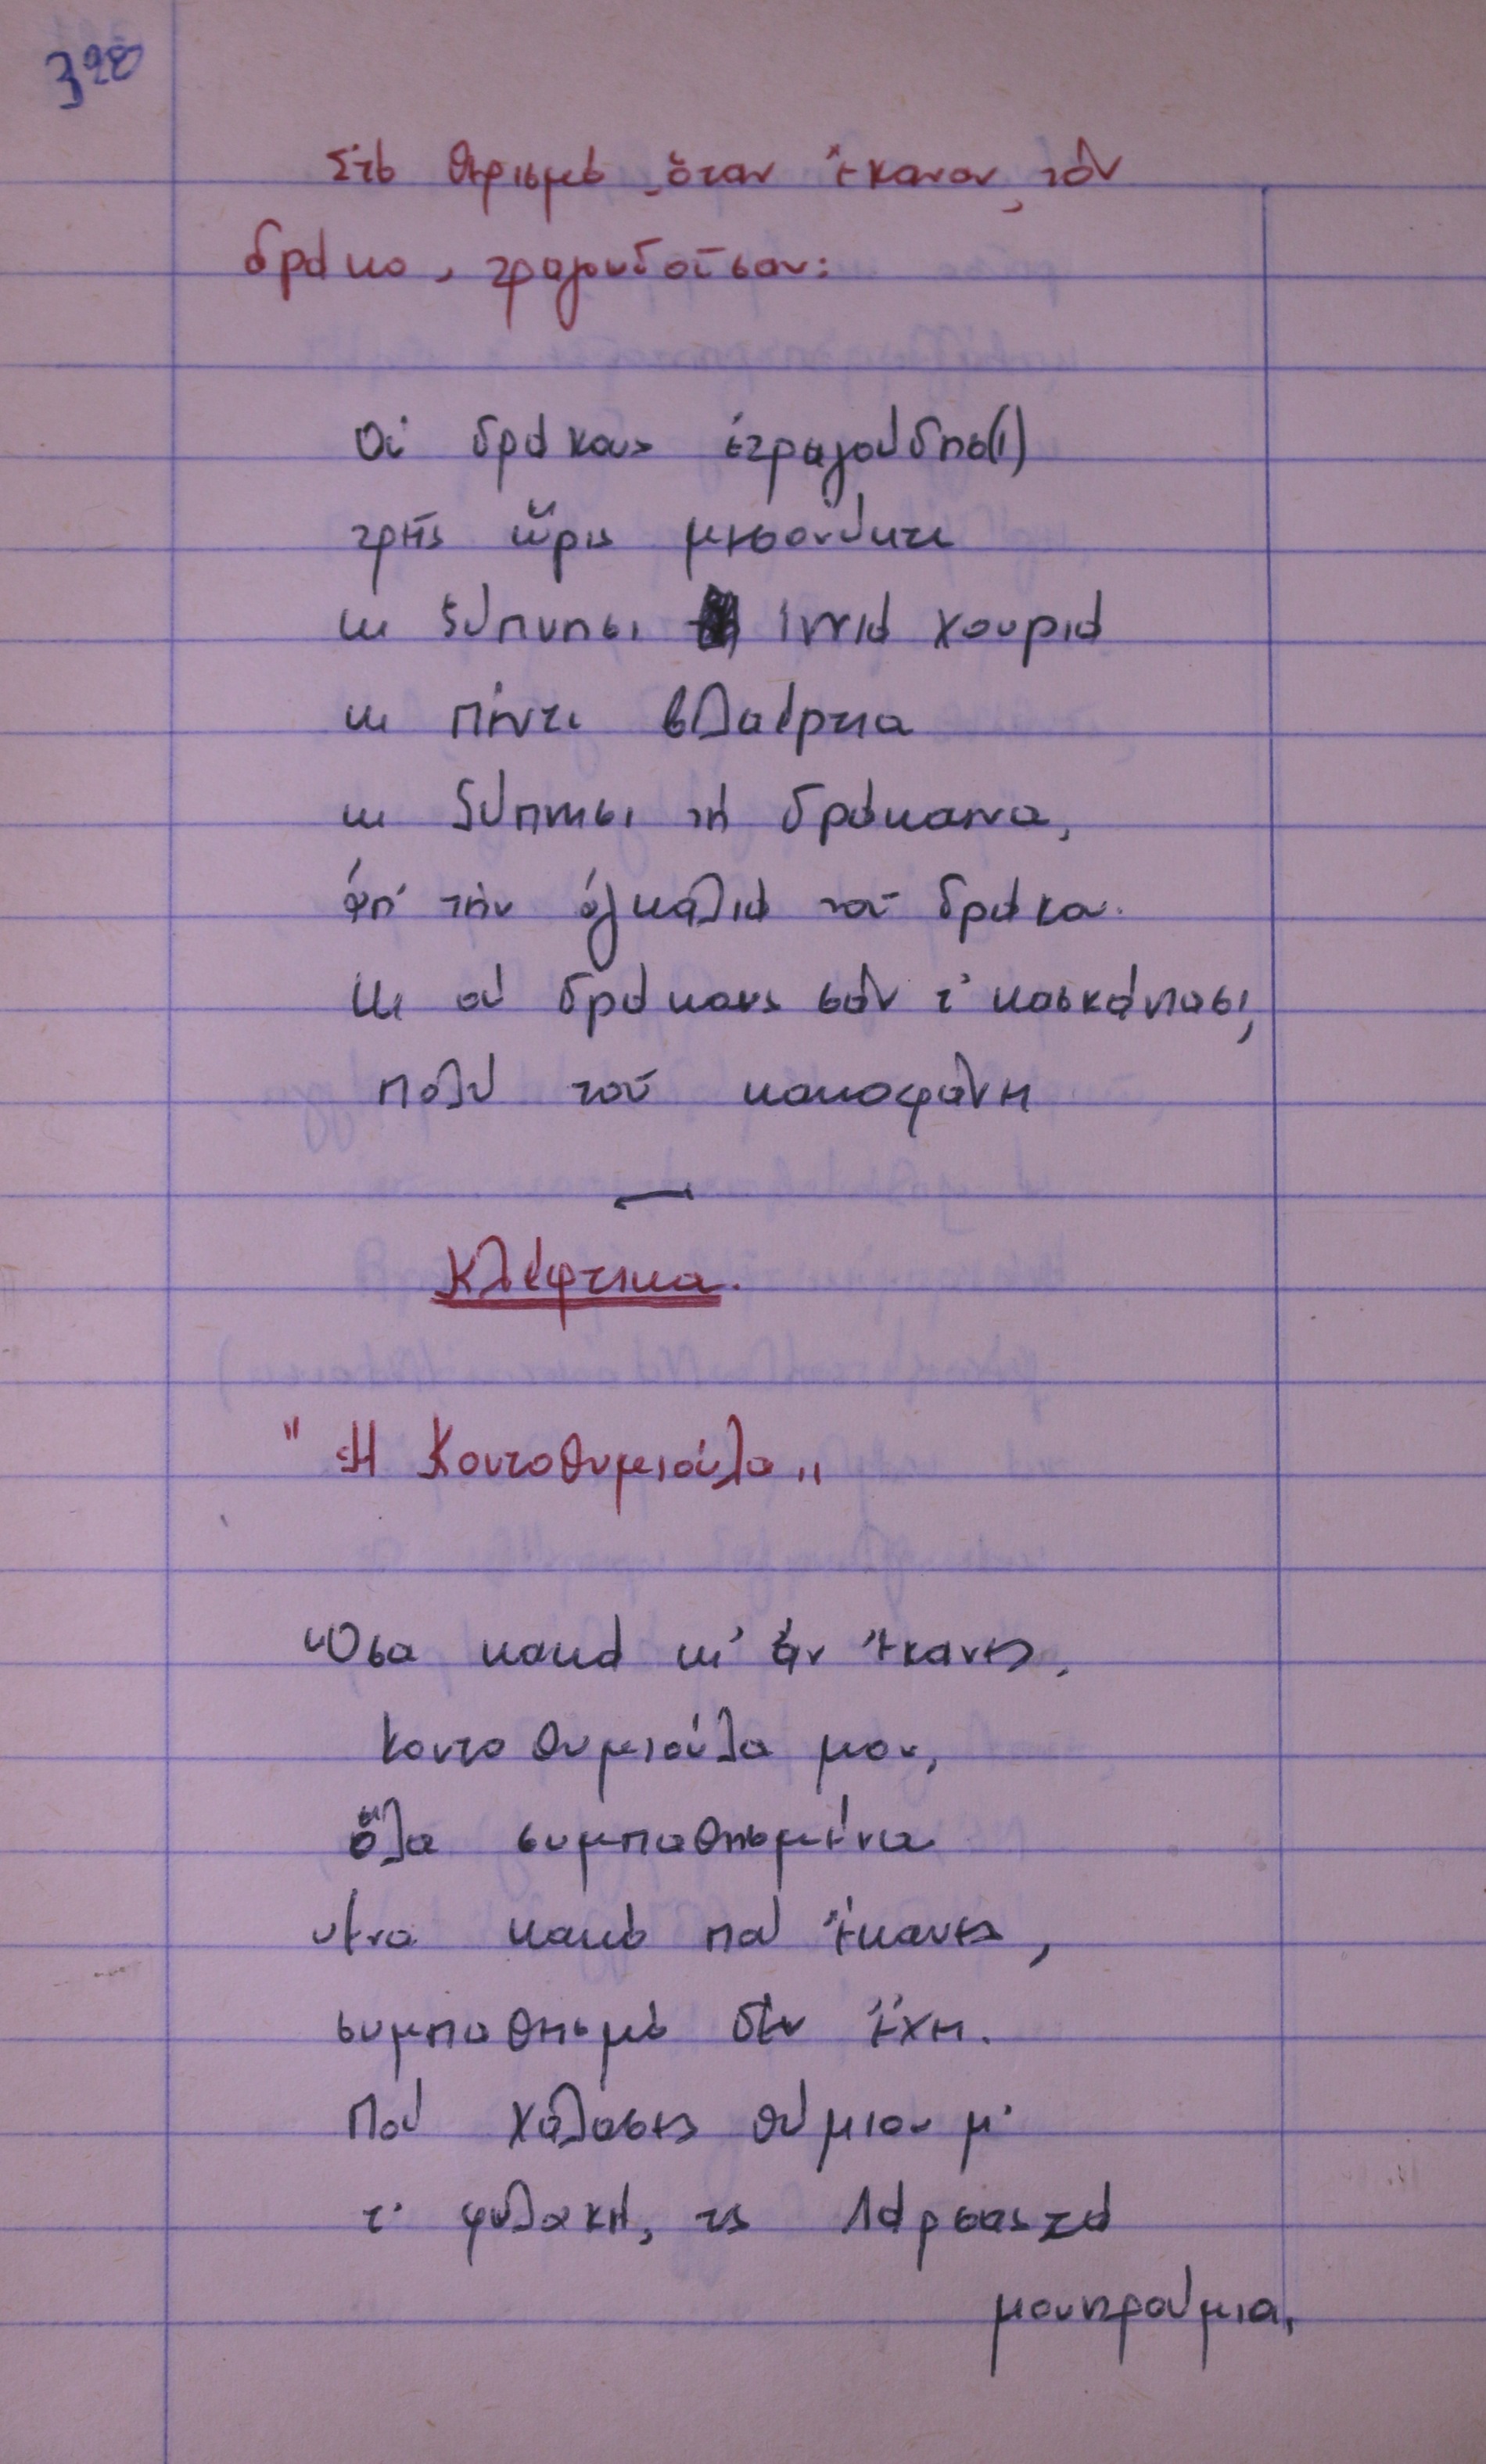 328
Στό θερισμό, ὅταν ἔκαναν τόν
δράκο, τραγουδοῦσαν:
Οὑ δράκους ἐτραγούδησ(ι)
τρεῖς ὥρις μεσονύκτι
κι ξύπνησι ἰννιά χουριά
κι πέντι βλαέρτια
κι ξύπνησι τή δράκαινα,
ἀπ' τήν ἀγκαλιά τοῦ δράκου.
Κι οὑ δράκους σάν τ'
πολύ τού κακοφάνη
Κλέφτικα.
"Ἡ Κοντοθυμιούλα"
Ὅσα κακά κι' ἄν ἔκανες,
Κοντοθυμιούλα μου,
ὅλα συμπαθησμένα
ἕνα κακό πού ἔκανες,
συμπαθησμό δέν ἔχει.
Πού χάλασες Θύμιου μ'
τ' φυλακή, τς Λάρσας τά
μουντρούμια.